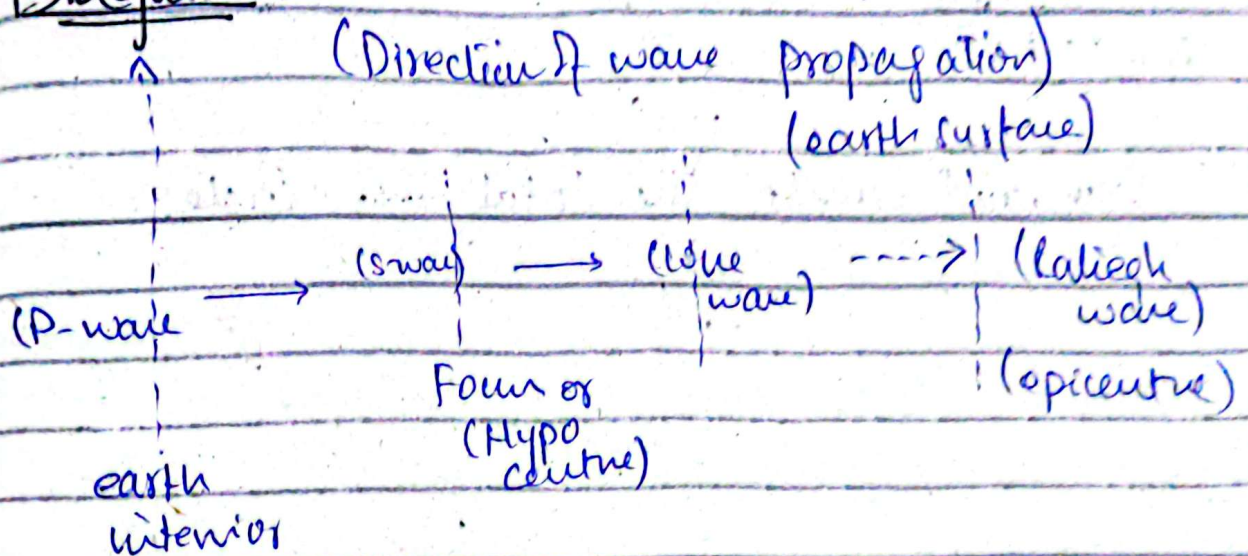 (Direction of wave propagation)
(earth surface)
(P-wave
(S-wave)
(Love
wave)
(Raliegh
wave)
Focus or
(Hypo
centre)
(epicentre)
earth
interior